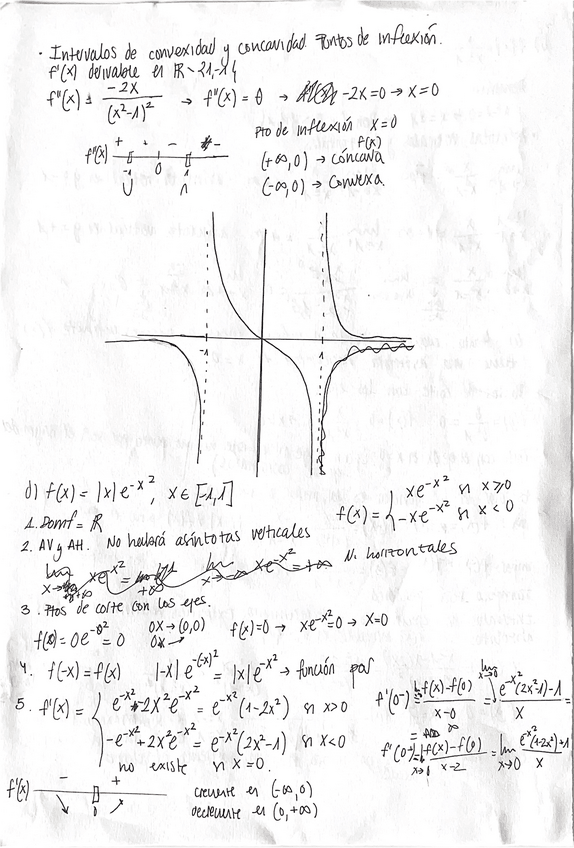 · Intervalos de convexidad y concavidad. Puntos de inflexión.
f'(x) derivable en ℝ∖{1,-1}
f''(x) = -2x/(x²-1)² → f''(x) = 0 → -2x=0 → x=0
Pto de inflexión x=0
f(x)
f''(x) + + - -
0 1
∪ ∩
(+∞,0) → cóncava
(-∞,0) → convexa.
-1 1
d) f(x) = |x| e^-x², x ∈ [-1,1]
f(x) = { xe^-x² si x≥0
-xe^-x² si x<0
1. Domf = ℝ
2. AV y AH. No habrá asíntotas verticales
N. horizontales
3. Ptos de corte con los ejes
f(0) = 0e^-0² = 0 OX → (0,0) f(x)=0 → xe^-x²=0 → x=0
OX →
4. f(-x) = f(x) |-x| e^-(-x)² = |x| e^-x² → función par
5. f'(x) = { e^-x² - 2x²e^-x² = e^-x²(1-2x²) si x>0
-e^-x² + 2x²e^-x² = e^-x²(2x²-1) si x<0
no existe si x=0.
f'(0⁻) = f(x)-f(0)/x-0 = lim x→0 e^-x²(2x²-1)-1/x =
f'(0⁺) = lim x→0 f(x)-f(0)/x-2 = lim x→0 e^-x²(1-2x²)+1/x
f'(x) - +
0
creciente en (-∞,0)
decreciente en (0,+∞)